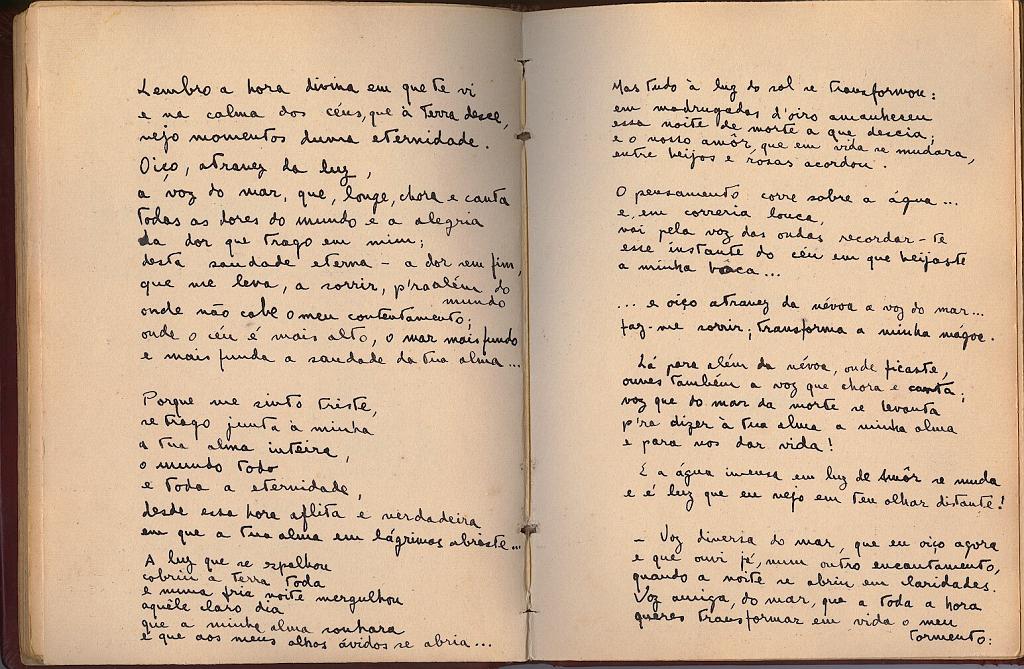 Lembro a hora divina em que te vi
e na calma dos céus, que à terra desce,
vejo momentos duma eternidade.
Oiço, atravez da luz,
a voz do mar, que, longe, chora e canta
todas as dores do mundo e a alegria
da dor que trago em mim;
desta saudade eterna – a dor sem fim,
que me leva, a sorrir, p'ra além do
mundo
onde não cabe o meu contentamento;
onde o céu é mais alto, o mar mais fundo
e mais funda a saudade da tua alma...
Porque me sinto triste,
se trago junta à minha
a tua alma inteira,
o mundo todo
e toda a eternidade,
desde essa hora aflita e verdadeira
em que a tua alma em lágrimas abriste...
A luz que se espalhou
cobriu a terra toda
e numa fria noite mergulhou
aquêle claro dia
que a minha alma sonhara
e que aos meus olhos ávidos se abria...
Mas tudo à luz do sol se transformou:
em madrugadas d'oiro amanheceu
essa noite de morte a que descia;
e o nosso amôr, que em vida se mudara,
entre beijos e rosas acordou.
O pensamento corre sobre a água...
e, em correria louca,
vai pela voz das ondas recordar-te
esse instante do céu em que beijaste
a minha bôca...
... e oiço atravez da névoa a voz do mar...
faz-me sorrir; transforma a minha mágoa.
Lá para além da névoa, onde ficaste,
ouves também a voz que chora e canta;
voz que do mar da morte se levanta
p'ra dizer à tua alma a minha alma
e para nos dar vida!
E a água imensa em luz de Amôr se muda
e é luz que eu vejo em teu olhar distante!
– Voz diversa do mar, que eu oiço agora
e que ouvi já, num outro encantamento,
quando a noite se abriu em claridades.
Voz amiga, do mar, que a toda a hora
queres transformar em vida o meu
tormento: